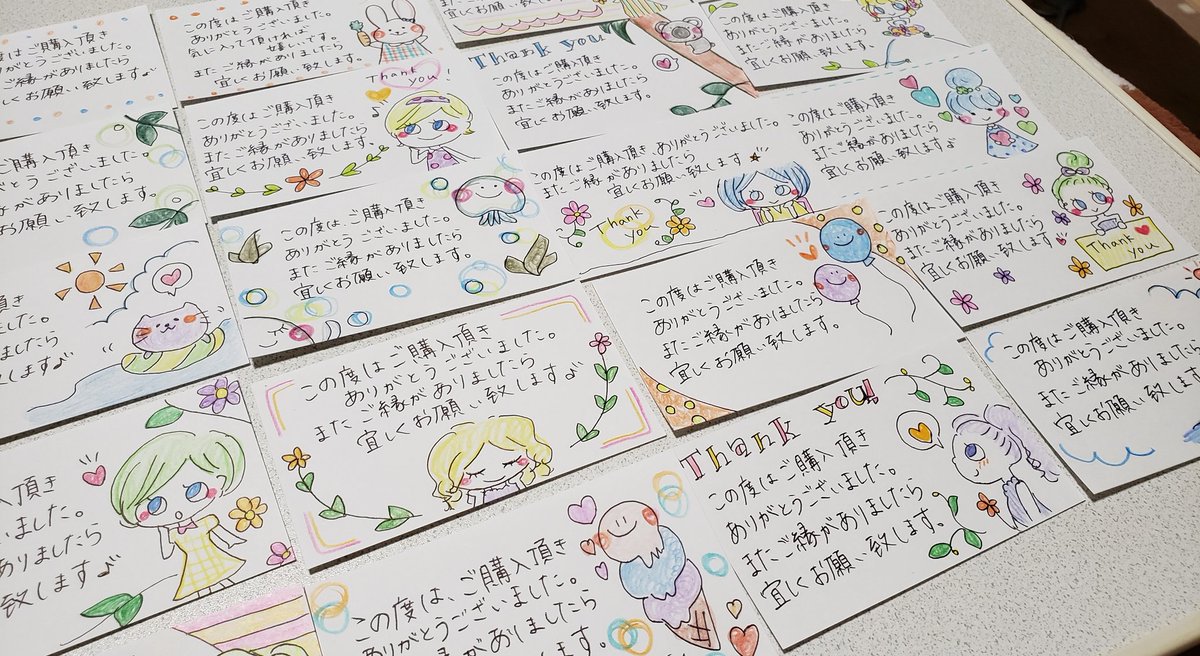 はご購入頂き
りがとうございました。
ご縁がありましたら
しくお願い致します♪
この度はご購入頂き
ありがとうございました。
気に入って頂ければ
嬉しいです。
またご縁がありましたら
宜しくお願い致します。
宜しくお願い致します
Thank you
この度はご購入頂き
ありがとうございました。
またご縁がありましたら
宜しくお願い致します。
この度はご購入頂き
ありがとうございました。
またご縁がありましたら
宜しくお願い致します。
Thank you!
この度はご購入頂き
ありがとうございました。
またご縁がありましたら
宜しくお願い致します。
この度はご購入頂き、ありがとうございました。
またご縁がありましたら
宜しくお願い致します
Thank you
この度はご購入頂き
ありがとうございました。
またご縁がありましたら
宜しくお願い致します♪
はご購入頂き
とうございました。
縁がありましたら
お願い致します。
この度はご購入頂き
ありがとうございました。
またご縁がありましたら
宜しくお願い致します。
この度はご購入頂き
ありがとうございました。
またご縁がありましたら
宜しくお願い致します。
Thank you
頂き
ました。
ましたら
致します♪
この度はご購入頂き
ありがとうございました。
またご縁がありましたら
宜しくお願い致します♪
この度はご購入頂き
ありがとうございました。
またご縁がありましたら
宜しくお願い致します。
この度はご購入頂き
ありがとうございました
またご縁がありました
宜しくお願い致します
入頂き
いました。
ありましたら
致します♪
この度は、ご購入頂き
ありがとうございました。
またご縁がありましたら
Thank you!!
この度はご購入頂き
ありがとうございました。
またご縁がありましたら
宜しくお願い致します。